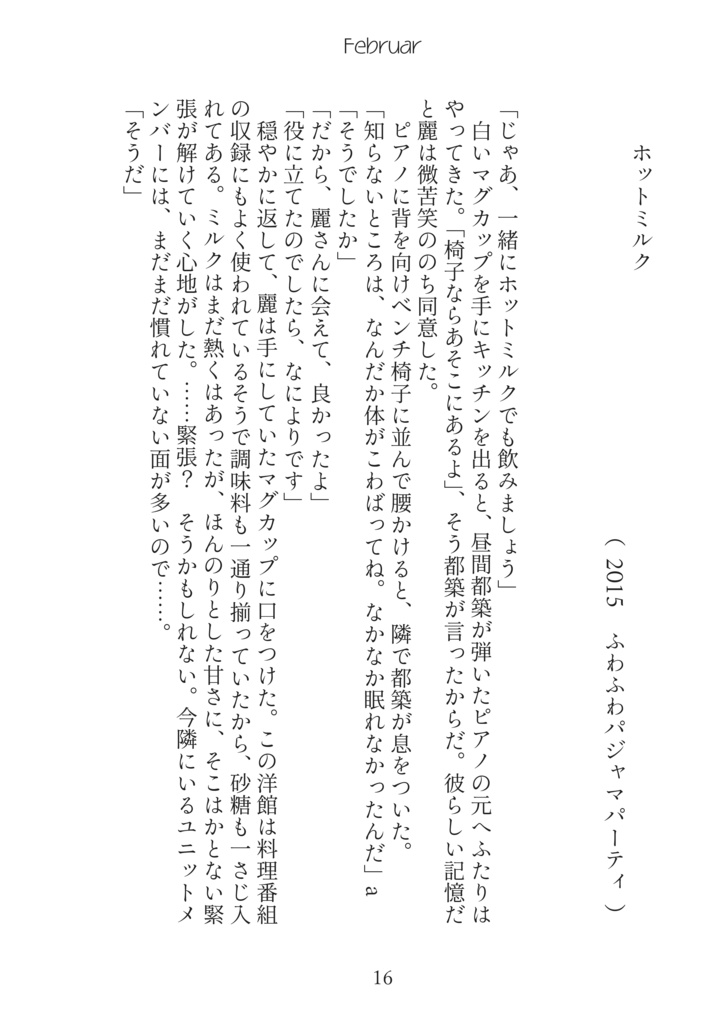 Februar
ホットミルク
( 2015 ふわふわパジャマパーティ )
「じゃあ、一緒にホットミルクでも飲みましょう」
　白いマグカップを手にキッチンを出ると、昼間都築が弾いたピアノの元へふたりは
やってきた。「椅子ならあそこにあるよ」、そう都築が言ったからだ。彼らしい記憶だ
と麗は微苦笑ののち同意した。
　ピアノに背を向けベンチ椅子に並んで腰かけると、隣で都築が息をついた。
「知らないところは、なんだか体がこわばってね。なかなか眠れなかったんだ」a
「そうでしたか」
「だから、麗さんに会えて、良かったよ」
「役に立てたのでしたら、なによりです」
　穏やかに返して、麗は手にしていたマグカップに口をつけた。この洋館は料理番組
の収録にもよく使われているそうで調味料も一通り揃っていたから、砂糖も一さじ入
れてある。ミルクはまだ熱くはあったが、ほんのりとした甘さに、そこはかとない緊
張が解けていく心地がした。……緊張？　そうかもしれない。今隣にいるユニットメ
ンバーには、まだまだ慣れていない面が多いので……。
「そうだ」
16